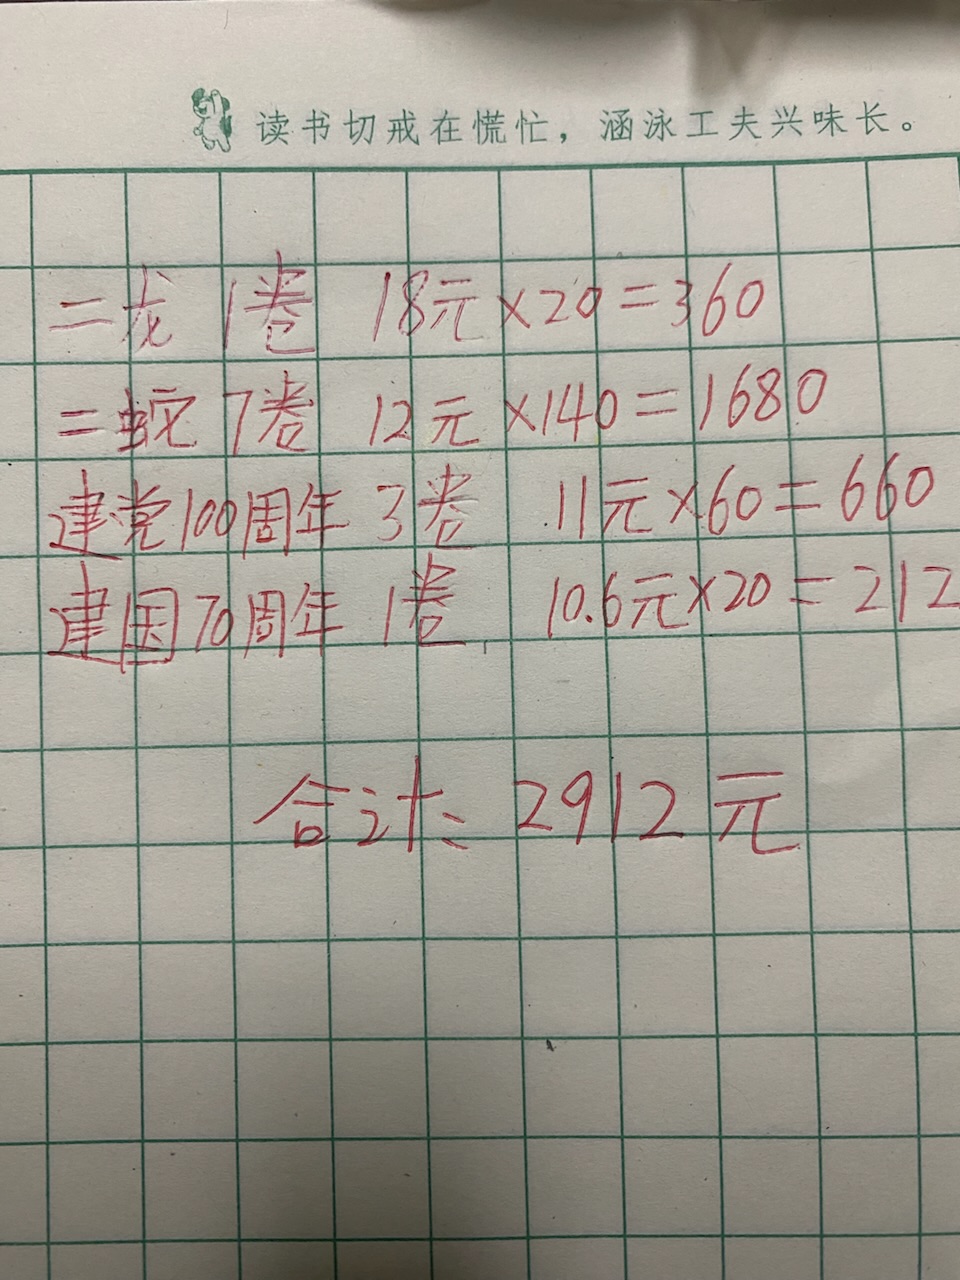 读书切戒在慌忙，涵泳工夫兴味长。
二龙 1卷 18元×20=360
二蛇 7卷 12元×140=1680
建党100周年 3卷 11元×60=660
建国70周年 1卷 10.6元×20=212
合计：2912元